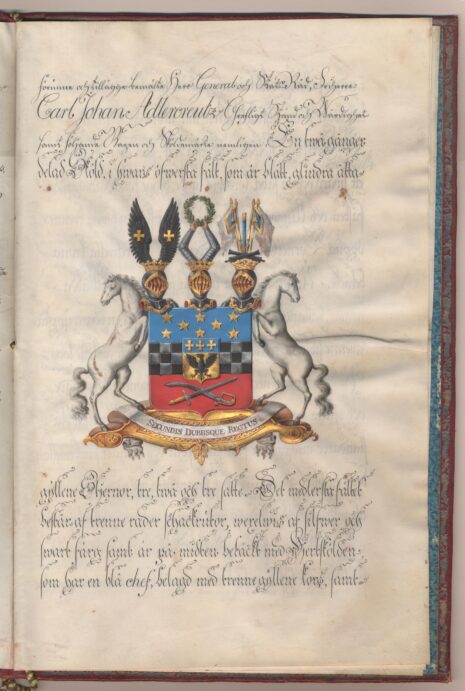 förunne och tillägge bemälte Herr General och Stats Råd, Grefve
Carl Johan Adlercreutz Grefligt Stånd och Wärdighet
samt följande Wapen och Sköldemärke nemligen En twå gånger
delad Sköld, i hwars öfwersta fält, som är blått, glindra åtta
SECUNDIS DUBIISQUE RECTUS
gyllene Stjernor, tre, twå och tre satte. Det medlersta fältet
består af trenne rader schackrutor, wexelwis af silfwer och
swart färg samt är på midten betäckt med Hjertskölden
som har en blå chef, belagd med trenne gyllene kors, samt